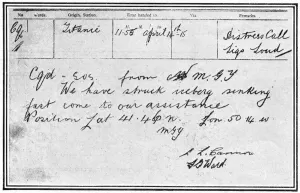 No. words. Origin. Station. Time handed in Via. Remarks.
Titanic 11.55 April 14th Distress Call
Sigs Loud
Cqd - Sos. from M.G.Y
We have struck iceberg sinking
fast come to our assistance
Position Lat 41.46 n. Lon. 50.14 w
MGY